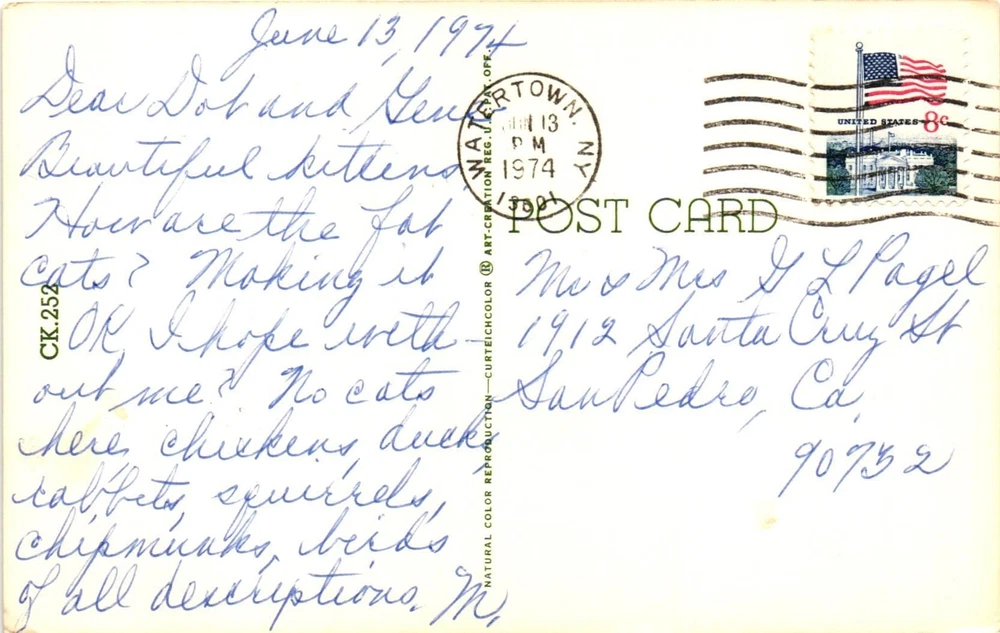 June 13, 1974
Dear Dot and Gene
Beautiful kittens
How are the fat
cats? Making it
OK, I hope with-
out me? No cats
here, chickens, ducks,
rabbits, squirrels,
chipmunks, birds
of all descriptions. M.
CK.252
NATURAL COLOR REPRODUCTION—CURTEICHCOLOR ® ART-CREATION REG. U.S. PAT. OFF.
WATERTOWN. NY
JUN 13
PM
1974
13601
UNITED STATES 8c
POST CARD
Mr & Mrs G L Pagel
1912 Santa Cruz St
San Pedro, Ca.
90732